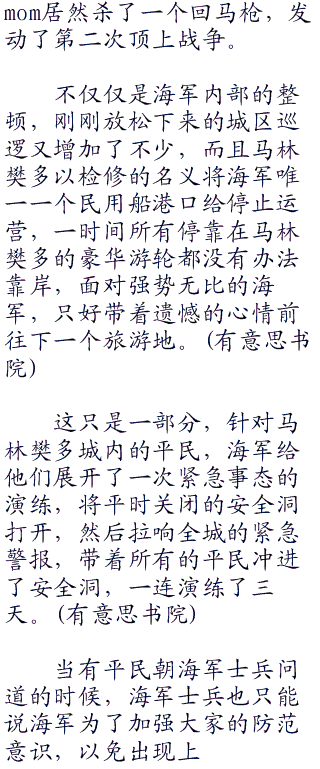 mom居然杀了一个回马枪，发
动了第二次顶上战争。
不仅仅是海军内部的整
顿，刚刚放松下来的城区巡
逻又增加了不少，而且马林
樊多以检修的名义将海军唯
一一个民用船港口给停止运
营，一时间所有停靠在马林
樊多的豪华游轮都没有办法
靠岸，面对强势无比的海
军，只好带着遗憾的心情前
往下一个旅游地。(有意思书
院)
这只是一部分，针对马
林樊多城内的平民，海军给
他们展开了一次紧急事态的
演练，将平时关闭的安全洞
打开，然后拉响全城的紧急
警报，带着所有的平民冲进
了安全洞，一连演练了三
天。(有意思书院)
当有平民朝海军士兵问
道的时候，海军士兵也只能
说海军为了加强大家的防范
意识，以免出现上